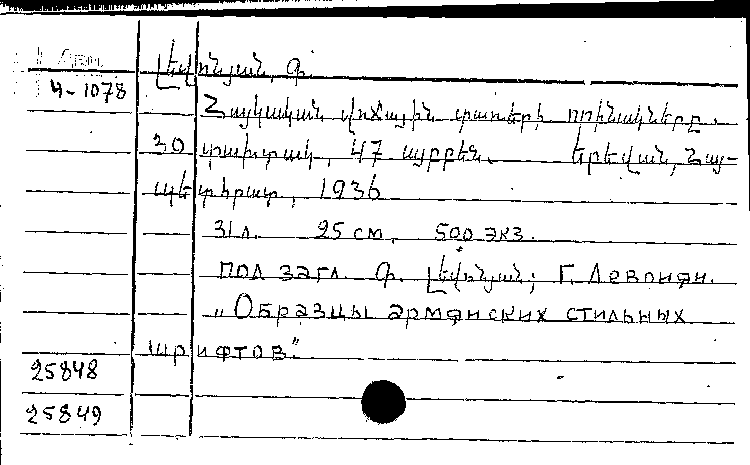 Լևոնյան, Գ.
Ч-1078
Հայկական վոճային տառերի որինակները.
30 տախտակ, 47 այբբեն. Երեվան, Հայ-
պետհրատ, 1936
31 л. 25 см, 500 экз.
под загл. Գ. Լևոնյան; Г. Левонян.
„Образцы армянских стильных
шрифтов".
25848
25849